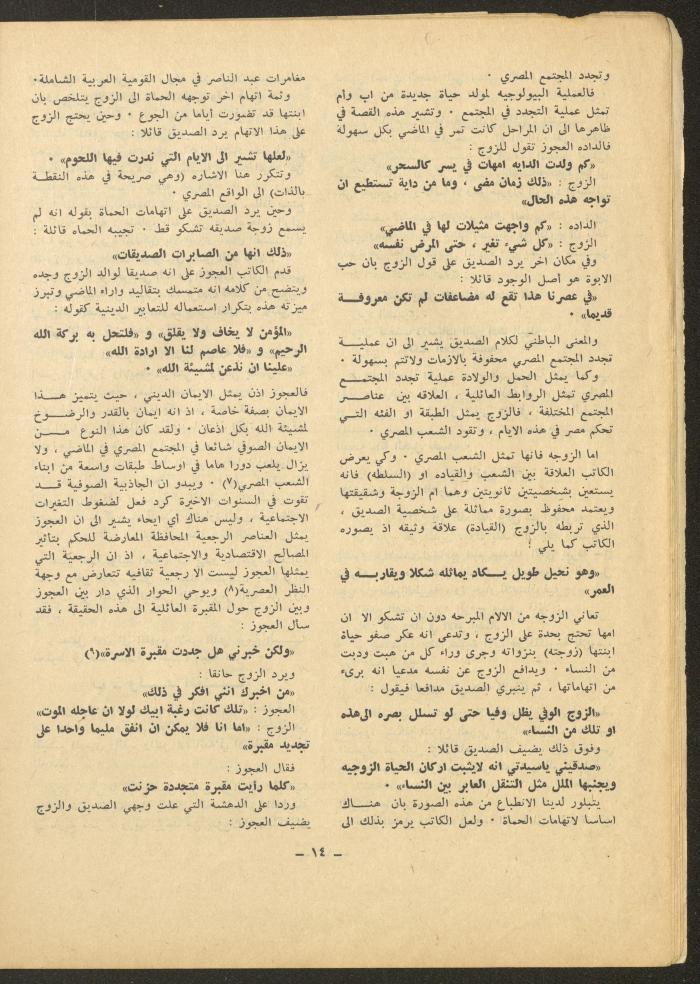 وتجدد المجتمع المصري ٠
فالعملية البيولوجيه لمولد حياة جديدة من اب وأم
تمثل عملية التجدد في المجتمع ٠ وتشير هذه القصة في
ظاهرها الى ان المراحل كانت تمر في الماضي بكل سهولة
فالداده العجوز تقول للزوج :
«كم ولدت الدايه امهات في يسر كالسحر»
الزوج : «ذلك زمان مضى ، وما من داية تستطيع ان
تواجه هذه الحال»
الداده : «كم واجهت مثيلات لها في الماضي»
الزوج : «كل شيء تغير ، حتى المرض نفسه»
وفي مكان اخر يرد الصديق على قول الزوج بان حب
الابوة هو أصل الوجود قائلا :
«في عصرنا هذا تقع له مضاعفات لم تكن معروفة
قديما» ٠
والمعنى الباطني لكلام الصديق يشير الى ان عملية
تجدد المجتمع المصري محفوفة بالازمات ولاتتم بسهولة ٠
وكما يمثل الحمل والولادة عملية تجدد المجتمع
المصري تمثل الروابط العائلية ، العلاقه بين عناصر
المجتمع المختلفة ، فالزوج يمثل الطبقة او الفئه التي
تحكم مصر في هذه الايام ، وتقود الشعب المصري ٠
اما الزوجه فانها تمثل الشعب المصري ٠ وكي يعرض
الكاتب العلاقة بين الشعب والقياده او (السلطه) فانه
يستعين بشخصيتين ثانويتين وهما ام الزوجة وشقيقتها
ويعتمد محفوظ بصورة مماثلة على شخصية الصديق ،
الذي تربطه بالزوج (القيادة) علاقة وثيقه اذ يصوره
الكاتب كما يلي :
«وهو نحيل طويل يكاد يماثله شكلا ويقاربه في
العمر»
تعاني الزوجه من الالام المبرحه دون ان تشكو الا ان
امها تحتج بحدة على الزوج ، وتدعى انه عكر صفو حياة
ابنتها (زوجته) بنزواته وجرى وراء كل من هبت ودبت
من النساء ٠ ويدافع الزوج عن نفسه مدعيا انه برىء
من اتهاماتها ، ثم ينبري الصديق مدافعا فيقول :
«الزوج الوفي يظل وفيا حتى لو تسلل بصره الى هذه
او تلك من النساء»
وفوق ذلك يضيف الصديق قائلا :
«صدقيني ياسيدتي انه لايثبت اركان الحياة الزوجيه
ويجنبها الملل مثل التنقل العابر بين النساء» ٠
يتبلور لدينا الانطباع من هذه الصورة بان هناك
اساسا لاتهامات الحماة ٠ ولعل الكاتب يرمز بذلك الى
مغامرات عبد الناصر في مجال القومية العربية الشاملة٠
وثمة اتهام اخر توجهه الحماة الى الزوج يتلخص بان
ابنتها قد تضورت أياما من الجوع ٠ وحين يحتج الزوج
على هذا الاتهام يرد الصديق قائلا :
«لعلها تشير الى الايام التي ندرت فيها اللحوم» ٠
وتتكرر هنا الاشاره (وهي صريحة في هذه النقطة
بالذات) الى الواقع المصري ٠
وحين يرد الصديق على اتهامات الحماة بقوله انه لم
يسمع زوجة صديقه تشكو قط ٠ تجيبه الحماه قائلة :
«ذلك انها من الصابرات الصديقات»
قدم الكاتب العجوز على انه صديقا لوالد الزوج وجده
ويتضح من كلامه انه متمسك بتقاليد واراء الماضي وتبرز
ميزته هذه بتكرار استعماله للتعابير الدينية كقوله :
«المؤمن لا يخاف ولا يقلق» و «فلتحل به بركة الله
الرحيم» و «فلا عاصم لنا الا ارادة الله»
«علينا ان نذعن لمشيئة الله» ٠
فالعجوز اذن يمثل الايمان الديني ، حيث يتميز هذا
الايمان بصفة خاصة ، اذ انه ايمان بالقدر والرضوخ
لمشيئة الله بكل اذعان ٠ ولقد كان هذا النوع من
الايمان الصوفي شائعا في المجتمع المصري في الماضي ، ولا
يزال يلعب دورا هاما في اوساط طبقات واسعة من ابناء
الشعب المصري(٧) ٠ ويبدو ان الجاذبية الصوفية قد
تقوت في السنوات الاخيرة كرد فعل لضغوط التغيرات
الاجتماعية ، وليس هناك أي ايحاء يشير الى ان العجوز
يمثل العناصر الرجعية المحافظة المعارضة للحكم بتأثير
المصالح الاقتصادية والاجتماعية ، اذ ان الرجعية التي
يمثلها العجوز ليست الا رجعية ثقافيه تتعارض مع وجهة
النظر العصرية(٨) ويوحي الحوار الذي دار بين العجوز
وبين الزوج حول المقبرة العائلية الى هذه الحقيقة ، فقد
سأل العجوز :
«ولكن خبرني هل جددت مقبرة الاسرة»(٩)
ويرد الزوج حانقا :
«من اخبرك انني افكر في ذلك»
العجوز : «تلك كانت رغبة ابيك لولا ان عاجله الموت»
الزوج : «اما انا فلا يمكن ان انفق مليما واحدا على
تجديد مقبرة»
فقال العجوز :
«كلما رأيت مقبرة متجددة حزنت»
وردا على الدهشة التي علت وجهي الصديق والزوج
يضيف العجوز :
– ١٤ –